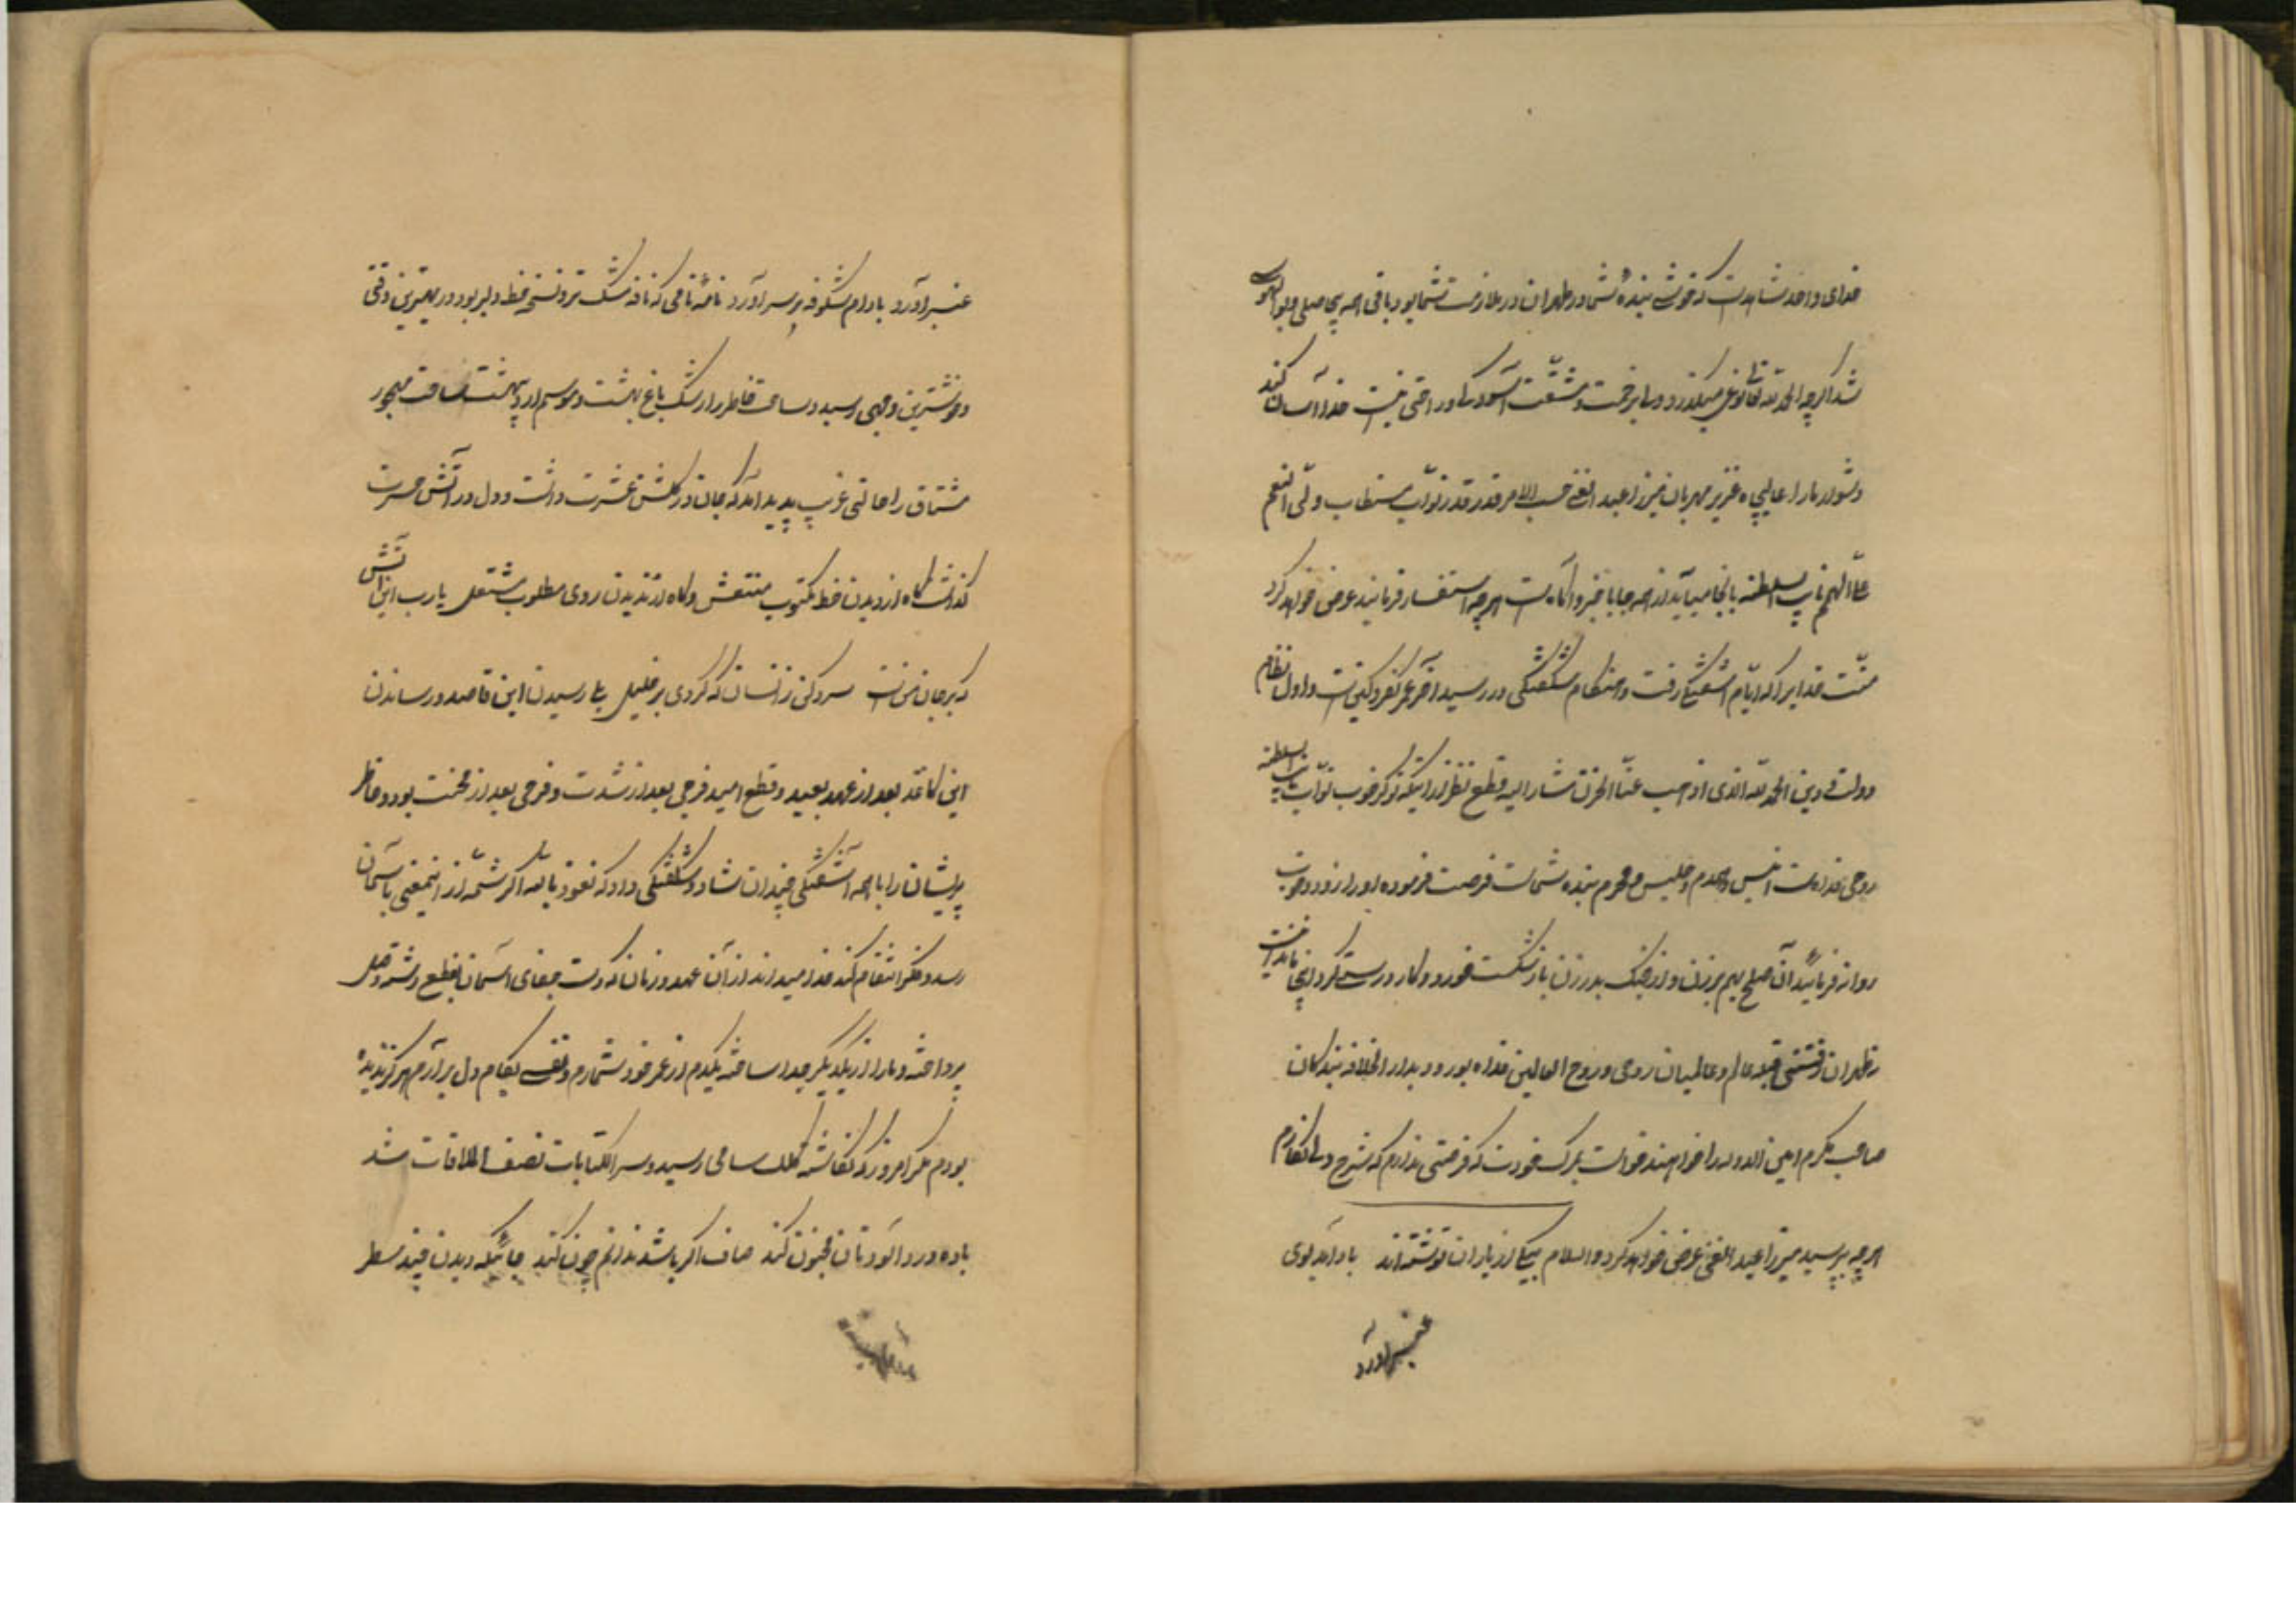 خدای واحد شاهد است که خوشی بنده شما در طهران در ملازمت شما بود باقی همه بی حاصلی و بوالهوسی
شد اگرچه الحمد لله تعالی خوش میگذرد و سایر زحمت و مشقت آسودگی و راحتی نیست خدا آسان کند
دشوار ما را عالیجاه عزیز مهربان میرزا عبد الغنی حسب الامر قدر قدر نواب مستطاب ولی النعم
نایب السلطنه بآنجا میآید از همه جا با خبر و آگاه است هرچه استفسار فرمایند عرض خواهد کرد
منت خدایرا که ایام آشفتگی رفت و هنگام شگفتگی در رسید آخر عمر کفر و کین است و اول نظام
دولت و دین الحمد لله الذی اذهب عنا الحزن مشار الیه قطع نظر از اینکه نوکر خوب نواب نایب السلطنه
روحی فداه است انیس و همدم و جلیس و محرم بنده شماست فرصت فرموده او را زود و خوب
روانه فرمائید آن صلح بهم برزن و از جنگ بدر زن باز شکست خورد و کار درستی نکرد اینجا
طهران قبله عالم و عالمیان روحی و روح العالمین فداه بود و بدار الخلافه بندگان
صاحب مکرم امین الدوله را خواهند خواست بمرگ خودت که فرصتی ندارم که شرح دل نگارم
هرچه بپرسید میرزا عبد الغنی عرض خواهد کرد والسلام بیکی از یاران نوشته اند باد آمد بوی
عنبر آورد
عنبر آورد بادام شکوفه بر سر آورد نامه نامی که نافه مشک تر و نسخه خط دلبر بود در بهترین وقتی
و خوشترین وجهی رسید و ساحت خاطر را رشک باغ بهشت و موسم اردیبهشت ساخت مهجور
مشتاق را حالتی غریب پدید آمد که جان در گلشن عشرت داشت و دل در آتش حسرت
گذاشت گاه از دیدن خط مکتوب منتعش و گاه از ندیدن روی مطلوب مشتعل یارب این آتش
که بر جان من است سرد کن زانسان که کردی بر خلیل بلی رسیدن این قاصد و رساندن
این کاغذ بعد از عهد بعید و قطع امید فرجی بعد از شدت و فرحی بعد از محنت بود و خاطر
پریشان را با همه آشفتگی چندان نشاط و شگفتگی داد که نعوذ بالله اگر شمه از اینمعنی بآسمان
رسد و فکر انتقام کند خدا میداند از آن عهد و زمان که دست جفای آسمان بقطع رشته وصل
پرداخته و ما را از یکدیگر جدا ساخته یکدم از عمر خود نشمارم و نفسی بکام دل بر نیارم هرگز ندیده
بودم مگر امروز که نگاشته کلک سامی رسید و سر الکتابات نصف الملاقات شد
باده درد آلودتان مجنون کند صاف اگر باشد ندانم چون کند جائیکه دیدن چند سطر